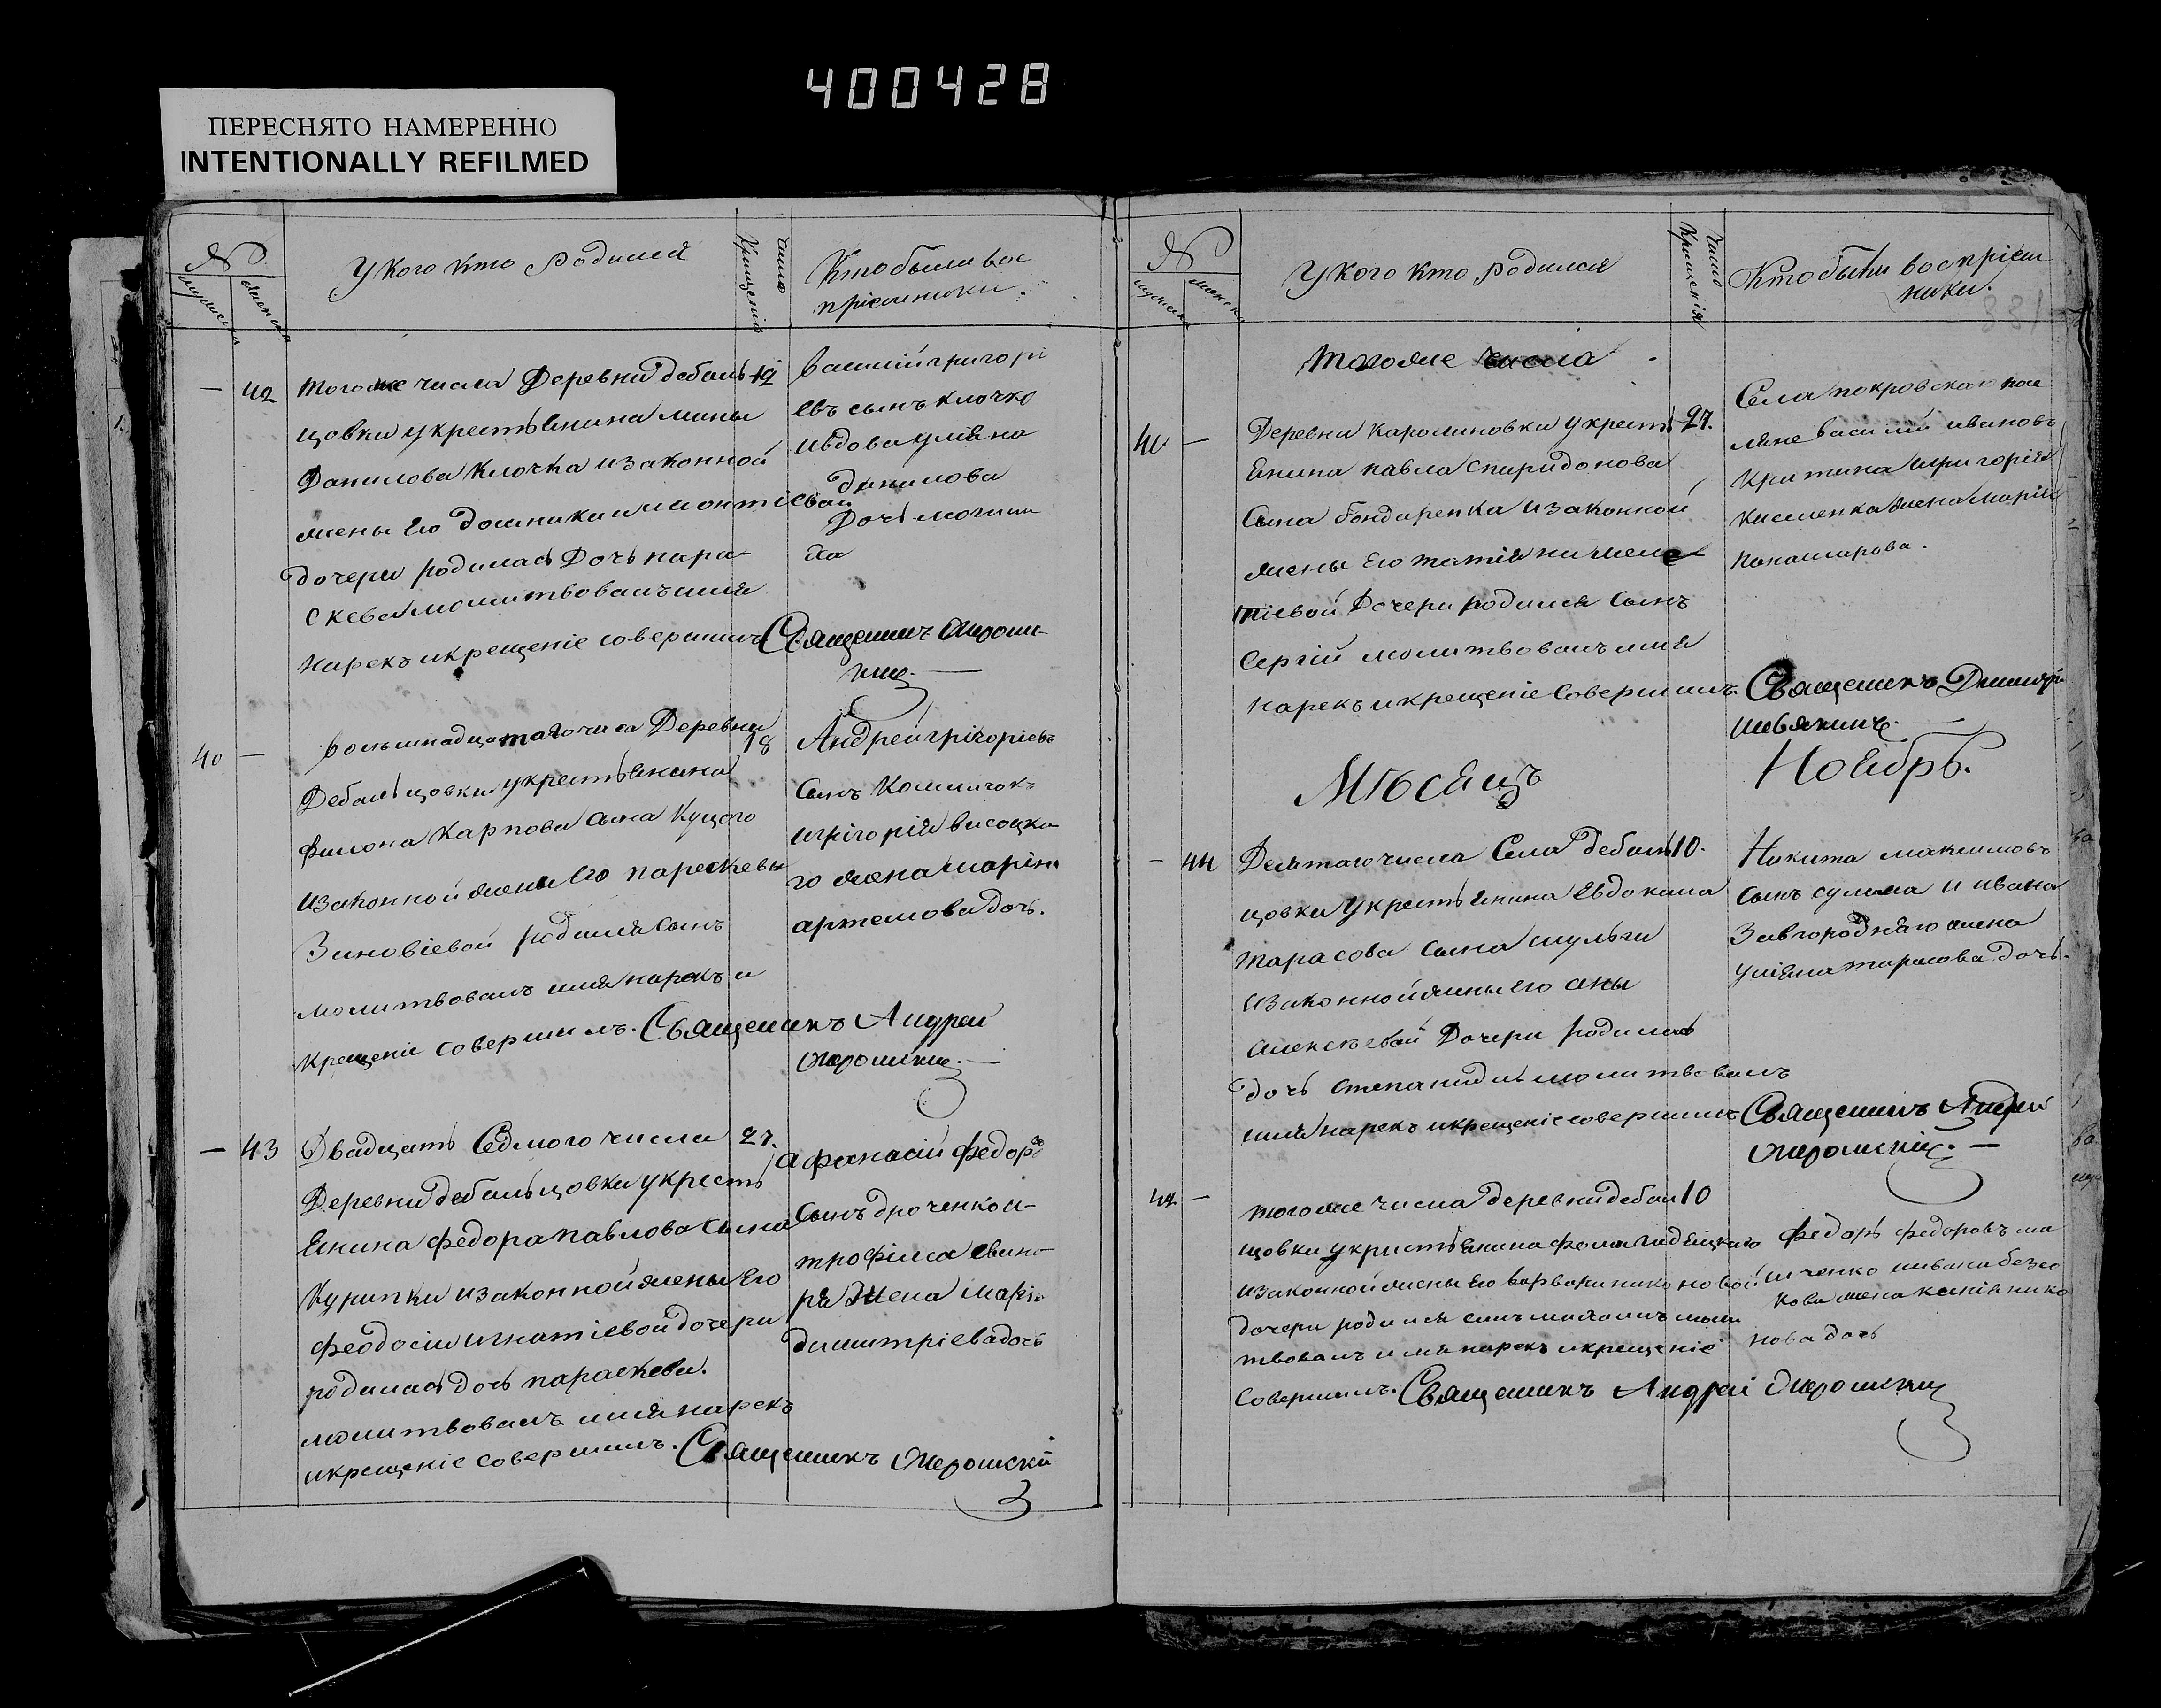 400428
ПЕРЕСНЯТО НАМЕРЕННО
INTENTIONALLY REFILMED
№
мужеска
женска
У кого кто родился
Число Крещенія
Кто были вос
пріемники.
— 42
Того же числа Деревни Дебаль 12
цовки у крестьянина мины
Данилова Клочка изаконной
жены его домники леонтіевой
дочери родилась Дочь пара
скева молитвовалъ имя
нарекъ и крещеніе совершилъ
василій григорі
евъ сынъ клочко
ивдова уляна
данилова
Дочь
Священникъ
40 —
восьмнадцатаго числа Деревни 18
Дебальцовки у крестьянина
филона Карпова сына Куцого
изаконной жены его параскевы
Зиновіевой родился сынъ
молитвовалъ имя нарекъ и
крещеніе совершилъ. Священикъ Андрей
Андрей григоріевъ
сынъ
и григорія высоцка
го жена марина
артемова дочь.
— 43
Двадцать Седмого числа 27.
Деревни дебальцовки у кресть
янина федора павлова сына
Курипки изаконной жены Его
феодосіи игнатіевой дочери
родилась дочь параскева.
молитвовалъ имя нарекъ
и крещеніе совершилъ. Священикъ
афанасій федоро
сынъ дроченко и
трофіма свина
ря жена марі
димитріева дочь
№
мужеска
женска
У кого кто родился
Число Крещенія
Кто были воспріем
ники.
331
того же числа
40 —
Деревни Каролиновки у кресть 27.
янина павла спиридонова
сына бондаренка изаконной
жены его татіяни
тіевой Дочери родился сынъ
Сергій молитвовалъ имя
нарекъ и крещеніе совершилъ.
Села покровскаго посе
ляне василій ивановъ
григорія
киселенка жена марія
Священикъ Димитрій
Мѣсяцъ Ноябрь.
— 44
Десятаго числа Села дебаль 10.
цовки у крестьянина Евдокима
тарасова сына шульги
изаконной жены его аны
алексѣевой Дочери родилась
дочь степанида молитвовалъ
имя нарекъ и крещеніе совершилъ
Никита максимовъ
сынъ сулима и ивана
Завгородняго жена
уліяна тарасова дочь.
Священикъ Андрей
41 —
того же числа деревни дебал 10
цовки у крестьянина фомы
изаконной жены его варвари никоновой
дочери родился сынъ михаилъ моли
твовалъ имя нарекъ и крещеніе
совершилъ. Священикъ Андрей
федоръ федоровъ
ченко иивана
кова жена ксенія нико
нова дочь